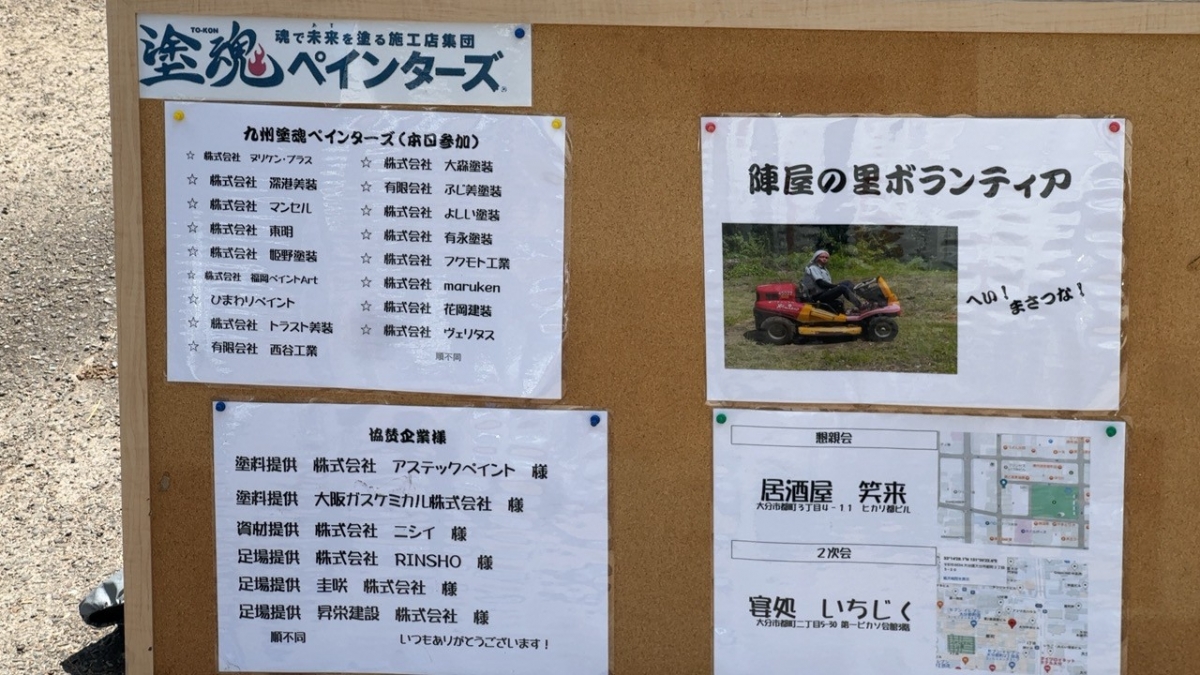 TO-KON
塗魂ペインターズ
魂で未来を塗る施工店集団
あす
九州塗魂ペインターズ(本日参加)
☆ 株式会社 ヌリケン・プラス
☆ 株式会社 深港美装
☆ 株式会社 マンセル
☆ 株式会社 東明
☆ 株式会社 姫野塗装
☆ 株式会社 福岡ペイントArt
☆ ひまわりペイント
☆ 株式会社 トラスト美装
☆ 有限会社 西谷工業
☆ 株式会社 大森塗装
☆ 有限会社 ふじ美塗装
☆ 株式会社 よしい塗装
☆ 株式会社 有永塗装
☆ 株式会社 フクモト工業
☆ 株式会社 maruken
☆ 株式会社 花岡建装
☆ 株式会社 ヴェリタス
順不同
協賛企業様
塗料提供 株式会社 アステックペイント 様
塗料提供 大阪ガスケミカル株式会社 様
資材提供 株式会社 ニシイ 様
足場提供 株式会社 RINSHO 様
足場提供 圭咲 株式会社 様
足場提供 昇栄建設 株式会社 様
順不同 いつもありがとうございます!
陣屋の里ボランティア
へい!
まさつな!
懇親会
居酒屋 笑来
大分市都町3丁目4-11 ヒカリ都ビル
2次会
宴処 いちじく
大分市都町二丁目5-30 第一ピカソ会館3階